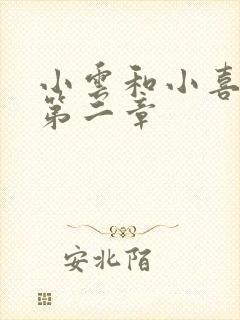 小雲和小喜
第二章
安北陌